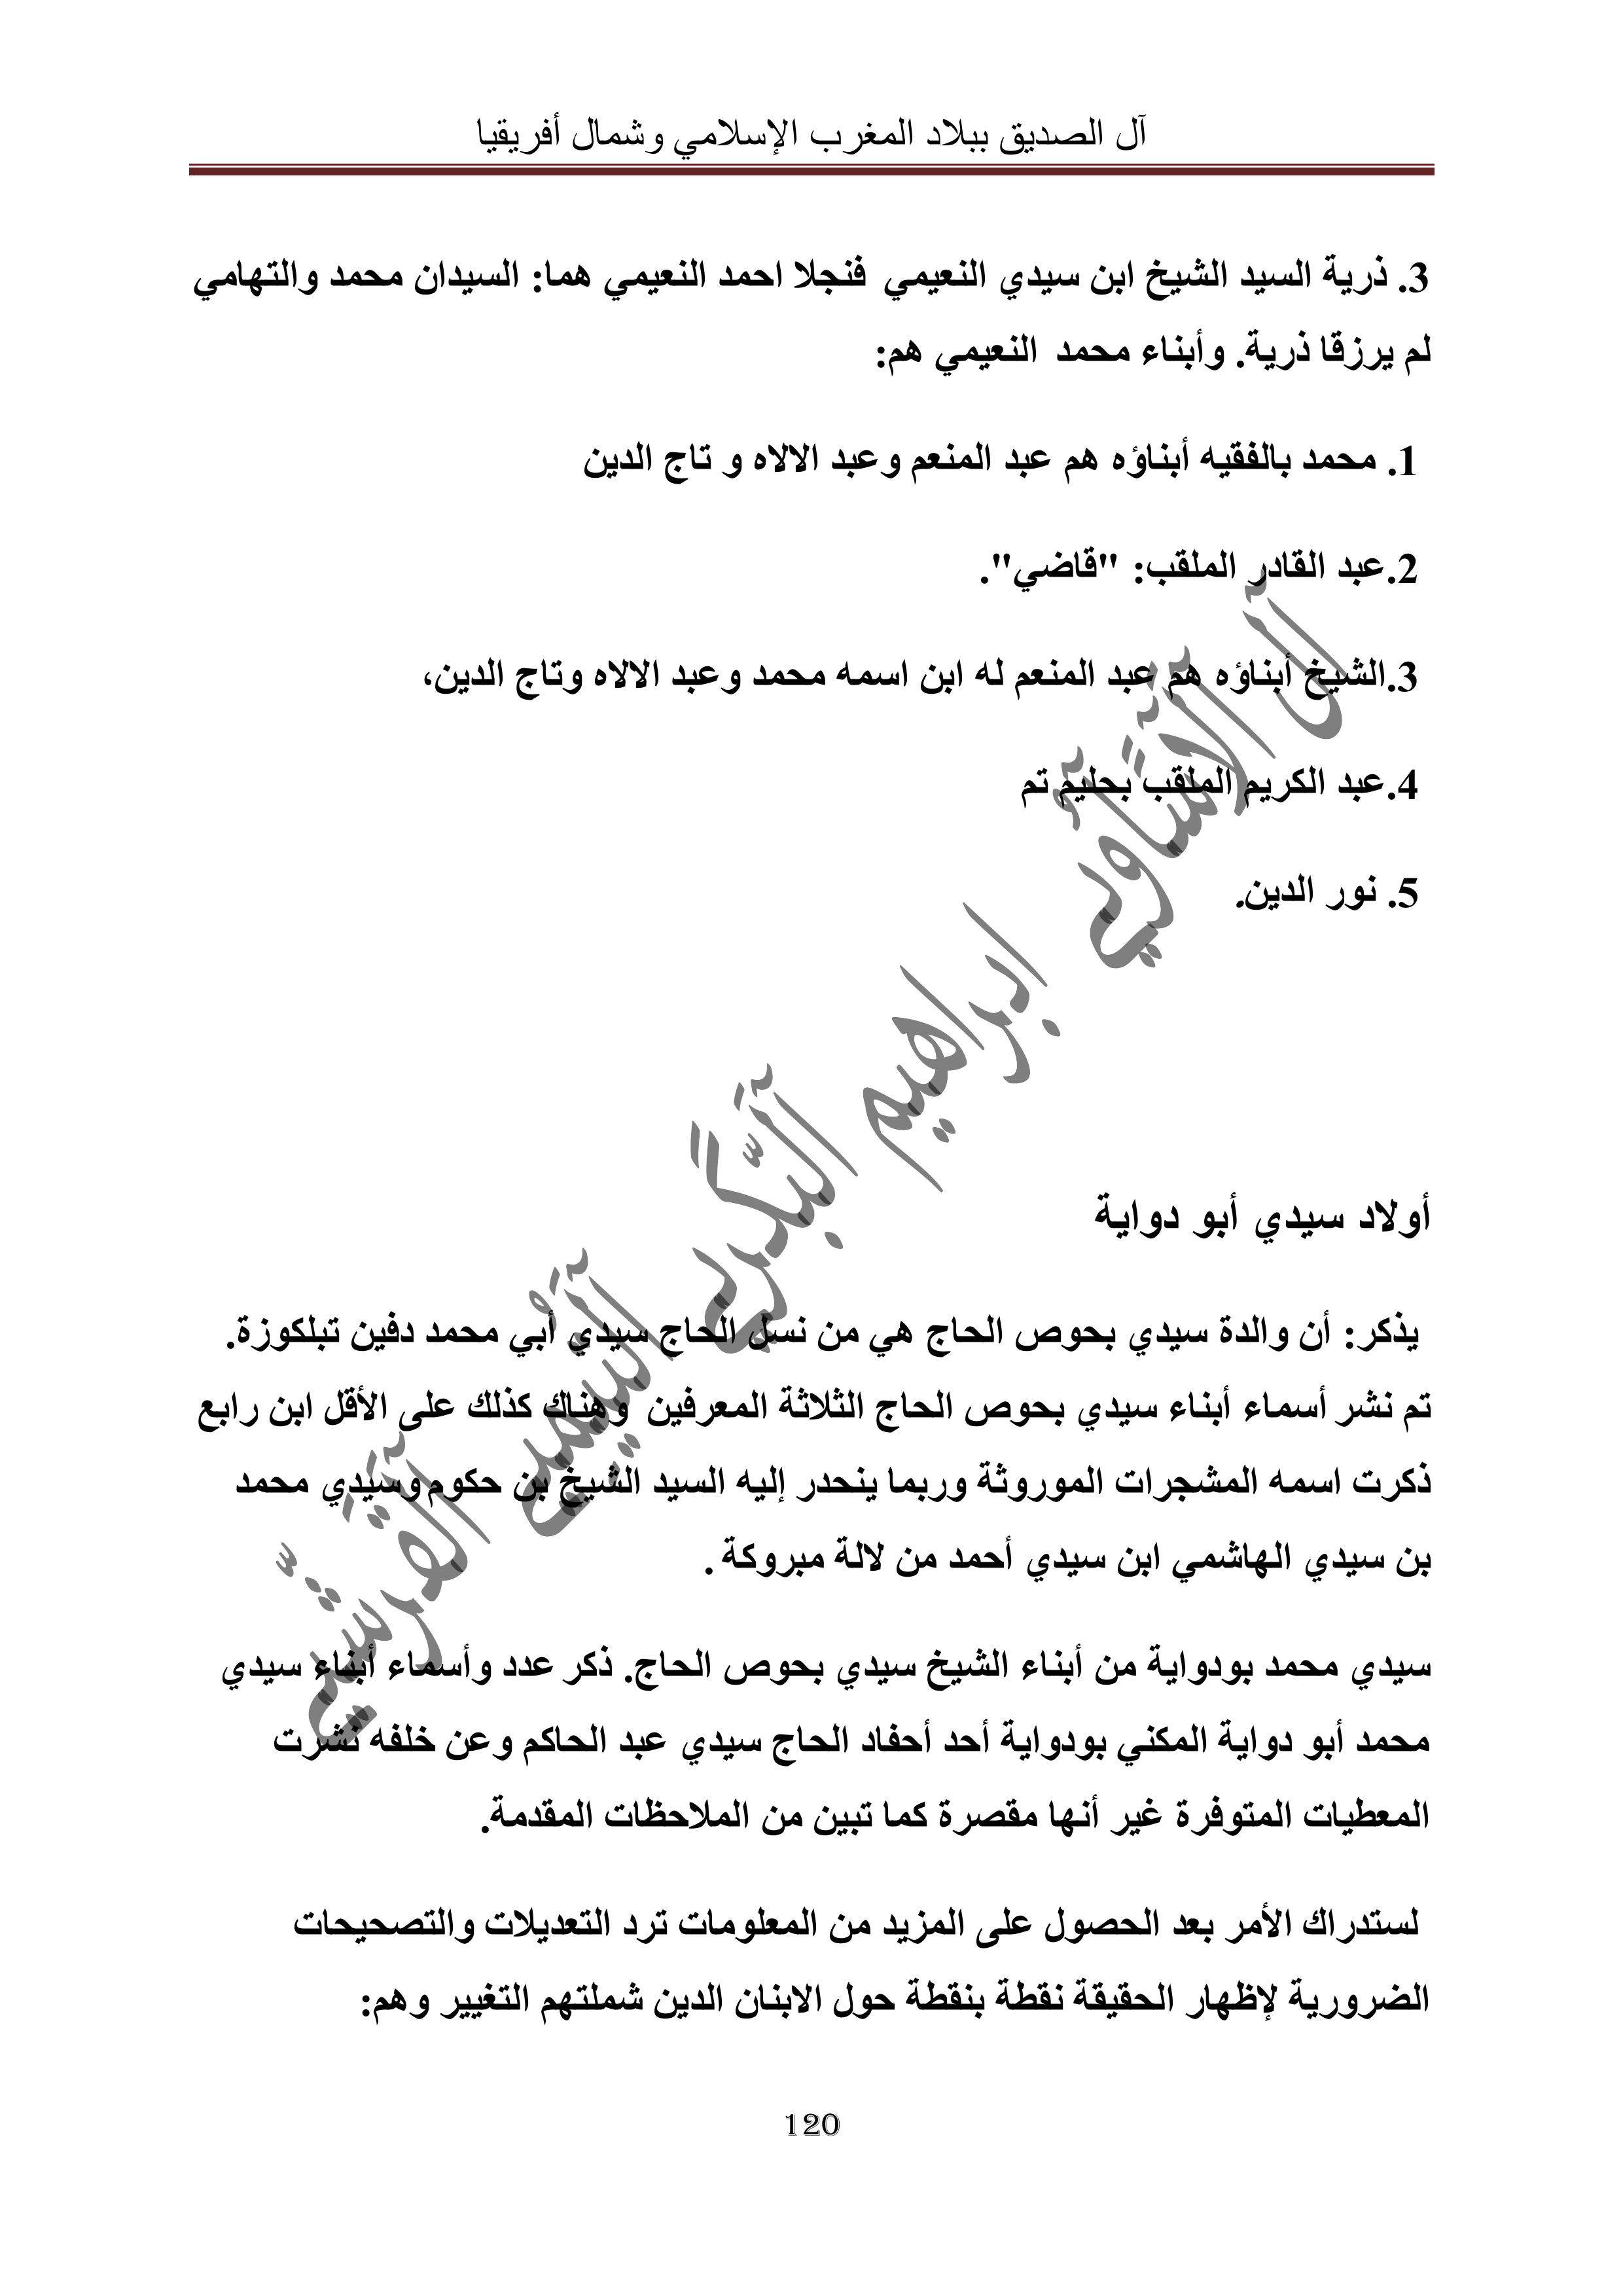 آل الصديق ببلاد المغرب الإسلامي وشمال أفريقيا
3. ذرية السيد الشيخ ابن سيدي النعيمي فنجلا احمد النعيمي هما: السيدان محمد والتهامي
لم يرزقا ذرية. وأبناء محمد النعيمي هم:
1. محمد بالفقيه أبناؤه هم عبد المنعم وعبد الالاه و تاج الدين
2.عبد القادر الملقب: "قاضي".
3.الشيخ أبناؤه هم عبد المنعم له ابن اسمه محمد وعبد الالاه وتاج الدين،
4.عبد الكريم الملقب بحليم تم
5. نور الدين.
أولاد سيدي أبو دواية
يذكر: أن والدة سيدي بحوص الحاج هي من نسل الحاج سيدي أبي محمد دفين تبلكوزة.
تم نشر أسماء أبناء سيدي بحوص الحاج الثلاثة المعرفين وهناك كذلك على الأقل ابن رابع
ذكرت اسمه المشجرات الموروثة وربما ينحدر إليه السيد الشيخ بن حكوم وسيدي محمد
بن سيدي الهاشمي ابن سيدي أحمد من لالة مبروكة .
سيدي محمد بودواية من أبناء الشيخ سيدي بحوص الحاج. ذكر عدد وأسماء أبناء سيدي
محمد أبو دواية المكني بودواية أحد أحفاد الحاج سيدي عبد الحاكم وعن خلفه نشرت
المعطيات المتوفرة غير أنها مقصرة كما تبين من الملاحظات المقدمة.
لستدراك الأمر بعد الحصول على المزيد من المعلومات ترد التعديلات والتصحيحات
الضرورية لإظهار الحقيقة نقطة بنقطة حول الابنان الدين شملتهم التغيير وهم:
120